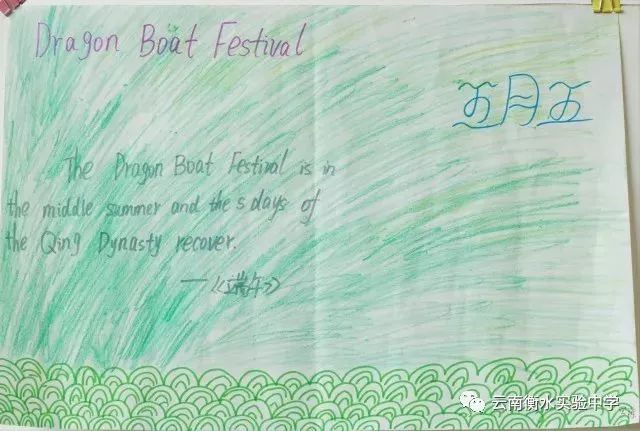 Dragon Boat Festival
五月五
The Dragon Boat Festival is in
the middle summer and the 5 days of
the Qing Dynasty recover.
—《端午》
云南衡水实验中学